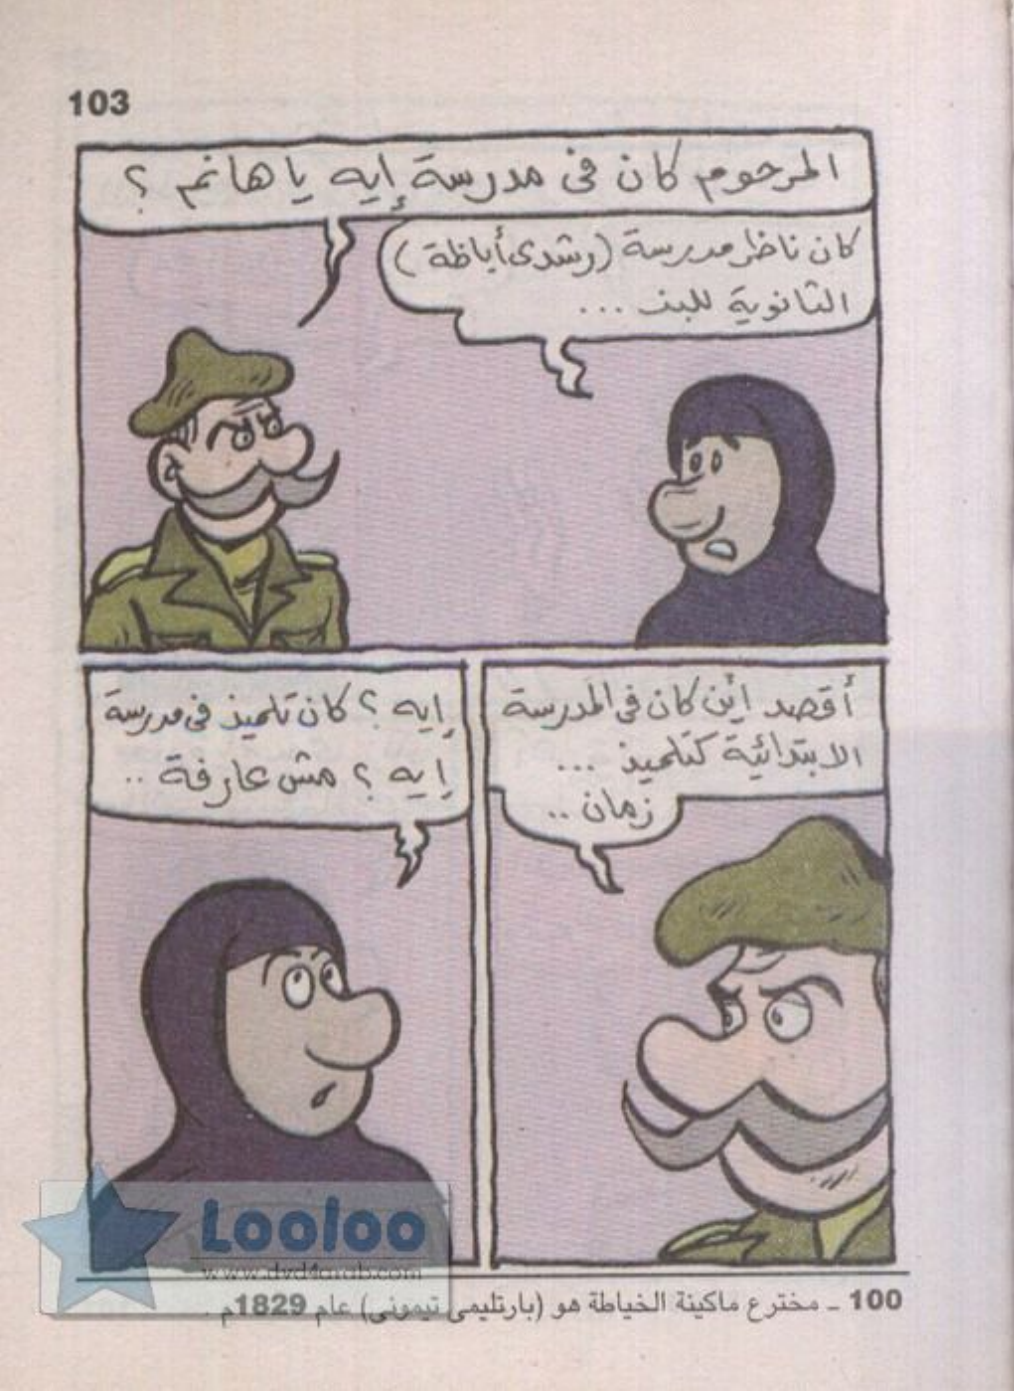 103
المرحوم كان فى مدرسة إيه يا هانم ؟
كان ناظر مدرسة (رشدى أباظة)
الثانوية للبنـ ...
أقصد أين كان فى المدرسة
الابتدائية كتلميذ ...
زمان ..
إيه ؟ كان تلميذ فى مدرسة
إيه ؟ مش عارفة ..
Looloo
www.dvd4arab.com
100 ـ مخترع ماكينة الخياطة هو (بارتليمى تيمونى) عام 1829م .